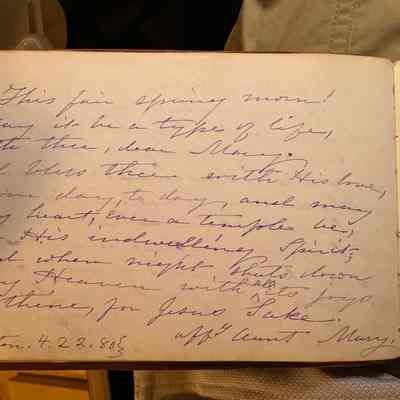 This fair spring morn!
it be a type of life,
thee, dear Mary.
bless thee with His love,
day, to day, and may
heart, Ever a temples be,
His indwelling Spirit;
when night shuts down
Heaven with all its joys
thine, for Jesus Sake.
aff'y Aunt Mary.
ton. 4.22.80